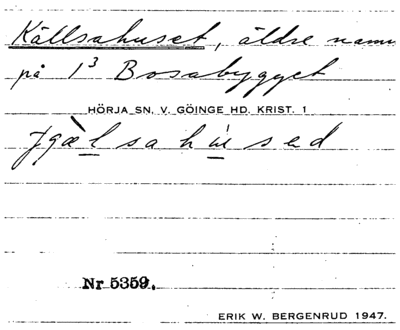 Källsahuset, äldre namn
på 1³ Bosabygget
HÖRJA SN. V. GÖINGE HD. KRIST. 1
Jgæ̀l sa hu̇sed
Nr 5359.
ERIK W. BERGENRUD 1947.